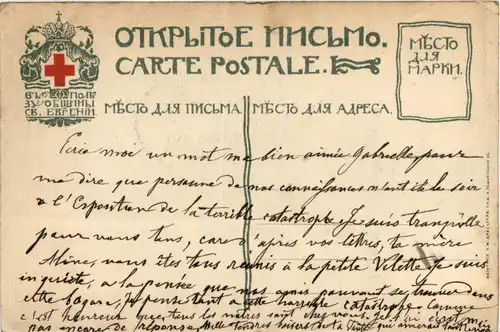 ОТКРЫТОЕ ПИСЬМО.
CARTE POSTALE.
МѢСТО
ДЛЯ
МАРКИ.
ВЪ ПОЛЬ
ЗУ ОБЩИНЫ
СВ. ЕВГЕНІИ
МѢСТО ДЛЯ ПИСЬМА.
МѢСТО ДЛЯ АДРЕСА.
Ecris moi un mot ma bien aimée Gabrielle pour
me dire que personne de nos connaissances n'ont été le soir
à l'Exposition de la terrible catastrophe. Je suis tranquille
pour vous tous, car d'après vos lettres, ta mère
Aline, vous êtes tous réunis à la petite Vilette. Je suis
inquiète, à la pensée que nos amis pouvaient se trouver dans
cette bagarre, je pense tant à cette horrible catastrophe comme
c'est heureux que tous les nôtres sont chez vous,
pas encore de réponse. Mille tendres baisers de la